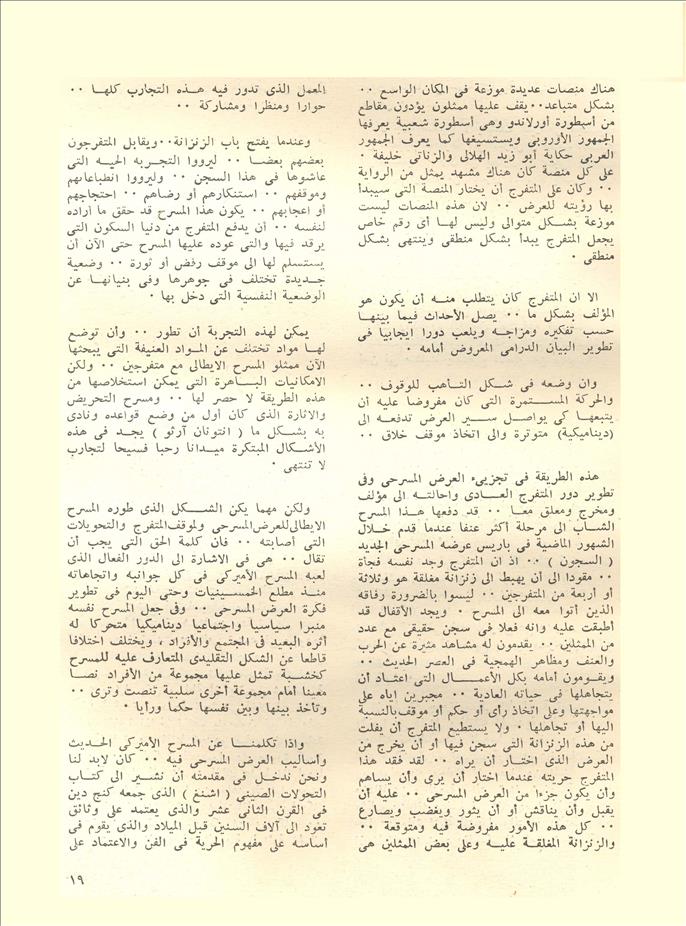 هناك منصات عديدة موزعة فى المكان الواسع ..
بشكل متباعد..يقف عليها ممثلون يؤدون مقاطع
من أسطورة أورلاندو وهى أسطورة شعبية يعرفها
الجمهور الأوروبى ويستسيغها كما يعرف الجمهور
العربى حكاية أبو زيد الهلالى والزناتى خليفة .
على كل منصة كان هناك مشهد يمثل من الرواية
.. وكان على المتفرج أن يختار المنصة التى سيبدأ
بها رؤيته للعرض .. لان هذه المنصات ليست
موزعة بشكل متوالى وليس لها أى رقم خاص
يجعل المتفرج يبدأ بشكل منطقى وينتهى بشكل
منطقى .
الا ان المتفرج كان يتطلب منه أن يكون هو
المؤلف بشكل ما .. يصل الأحداث فيما بينها
حسب تفكيره ومزاجه ويلعب دورا ايجابيا فى
تطوير البيان الدرامى المعروض أمامه .
وان وضعه فى شكل التأهب للوقوف ..
والحركة المستمرة التى كان مفروضا عليه أن
يتبعها كى يواصل سير العرض تدفعه الى
(ديناميكية) متوترة والى اتخاذ موقف خلاق ..
هذه الطريقة فى تجزيىء العرض المسرحى وفى
تطوير دور المتفرج العادى واحالته الى مؤلف
ومخرج ومعلق معا .. قد دفعها هذا المسرح
الشاب الى مرحلة أكثر عنفا عندما قدم خلال
الشهور الماضية فى باريس عرضه المسرحى الجديد
( السجون ) .. اذ ان المتفرج وجد نفسه فجأة
.. مقودا الى أن يهبط الى زنزانة مغلقة هو وثلاثة
أو أربعة من المتفرجين .. ليسوا بالضرورة رفاقه
الذين أتوا معه الى المسرح . ويجد الأقفال قد
أطبقت عليه وانه فعلا فى سجن حقيقى مع عدد
من الممثلين .. يقدمون له مشاهد مثيرة عن الحرب
والعنف ومظاهر الهمجية فى العصر الحديث ..
ويقومون أمامه بكل الأعمال التى اعتاد أن
يتجاهلها فى حياته العادية .. مجبرين اياه على
مواجهتها وعلى اتخاذ رأى أو حكم أو موقف بالنسبة
اليها أو تجاهلها . ولا يستطيع المتفرج أن يفلت
من هذه الزنزانة التى سجن فيها أو أن يخرج من
العرض الذى اختار أن يراه .. لقد فقد هذا
المتفرج حريته عندما اختار أن يرى وأن يساهم
وأن يكون جزءا من العرض المسرحى .. عليه أن
يقبل وأن يناقش أو أن يثور ويغضب ويصارع
.. كل هذه الأمور مفروضة فيه ومتوقعة ..
والزنزانة المغلقة عليه وعلى بعض الممثلين هى
المعمل الذى تدور فيه هذه التجارب كلها ..
حوارا ومنظرا ومشاركة ..
وعندما يفتح باب الزنزانة..ويقابل المتفرجون
بعضهم بعضا .. ليرووا التجربه الحيه التى
عاشوها فى هذا السجن .. وليرووا انطباعاتهم
وموقفهم .. استنكارهم أو رضاهم .. احتجاجهم
أو اعجابهم .. يكون هذا المسرح قد حقق ما أراده
لنفسه .. أن يدفع المتفرج من دنيا السكون التى
يرقد فيها والتى عوده عليها المسرح حتى الآن أن
يستسلم لها الى موقف رفض أو ثورة .. وضعية
جديدة تختلف فى جوهرها وفى بنيانها عن
الوضعية النفسية التى دخل بها .
يمكن لهذه التجربة أن تطور .. وأن توضع
لها مواد تختلف عن المواد العنيفة التى يبحثها
الآن ممثلو المسرح الايطالى مع متفرجين .. ولكن
الامكانيات الباهرة التى يمكن استخلاصها من
هذه الطريقة لا حصر لها .. ومسرح التحريض
والاثارة الذى كان أول من وضع قواعده ونادى
به بشكل ما ( انتونان آرثو ) يجد فى هذه
الأشكال المبتكرة ميدانا رحبا فسيحا لتجارب
لا تنتهى .
ولكن مهما يكن الشكل الذى طوره المسرح
الايطالى للعرض المسرحى ولموقف المتفرج والتحويلات
التى أصابته .. فان كلمة الحق التى يجب أن
تقال .. هى فى الاشارة الى الدور الفعال الذى
لعبه المسرح الأميركى فى كل جوانبه واتجاهاته
منذ مطلع الخمسينيات وحتى اليوم فى تطوير
فكرة العرض المسرحى .. وفى جعل المسرح نفسه
منبرا سياسيا واجتماعيا ديناميكيا متحركا له
أثره البعيد فى المجتمع والأفراد ، ويختلف اختلافا
قاطعا عن الشكل التقليدى المتعارف عليه للمسرح
كخشبة تمثل عليها مجموعة من الأفراد نصا
معينا أمام مجموعة أخرى سلبية تنصت وترى ..
وتأخذ بينها وبين نفسها حكما ورأيا .
واذا تكلمنا عن المسرح الأميركى الحديث
وأساليب العرض المسرحى فيه .. كان لابد لنا
ونحن ندخل فى مقدمته أن نشير الى كتاب
التحولات الصينى ( اشنغ ) الذى جمعه كنج دين
فى القرن الثانى عشر والذى يعتمد على وثائق
تعود الى آلاف السنين قبل الميلاد والذى يقوم فى
أساسه على مفهوم الحرية فى الفن والاعتماد على
١٩